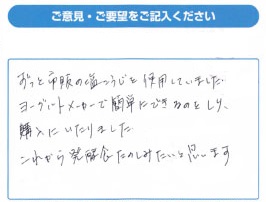 ご意見・ご要望をご記入ください
ずっと市販の塩こうじを使用していました.
ヨーグルトメーカーで簡単にできるのをしり、
購入にいたりました.
これから発酵食たのしみたいと思います